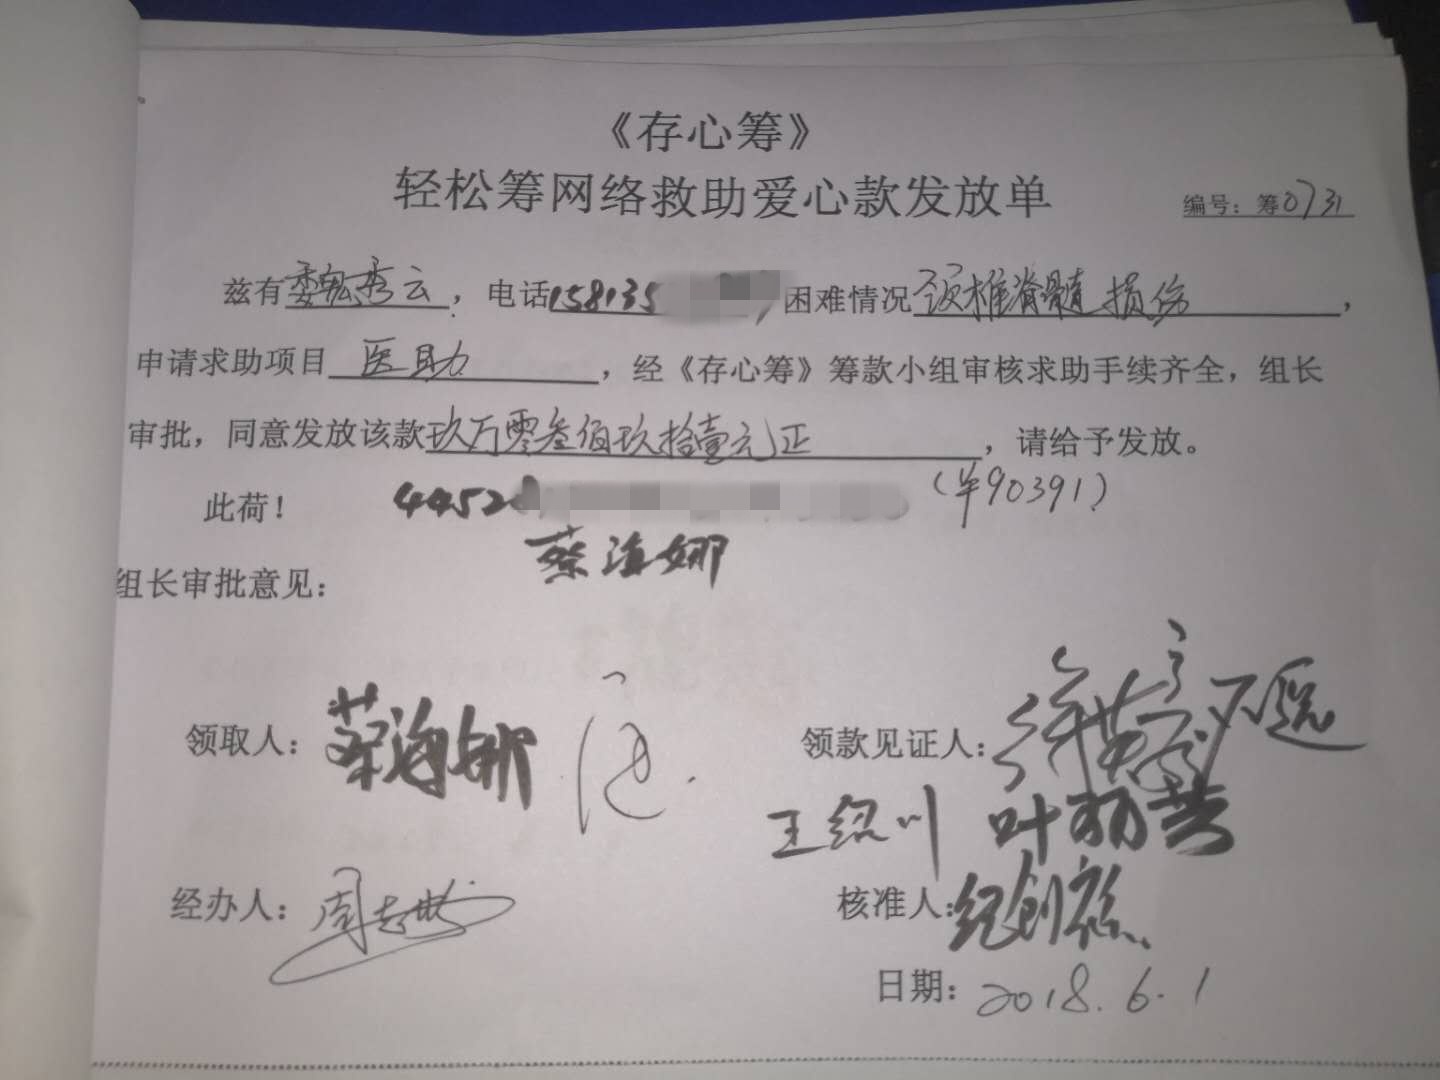 《存心筹》
轻松筹网络救助爱心款发放单
编号：筹0731
兹有魏秀云，电话158135 困难情况颈椎脊髓损伤，
申请求助项目医助，经《存心筹》筹款小组审核求助手续齐全，组长
审批，同意发放该款玖万零叁佰玖拾壹元正，请给予发放。
(¥90391)
此荷！ 4452
蔡海娜
组长审批意见：
领取人：蔡海娜
领款见证人：
王绍川 叶丽芸
经办人：周
核准人：纪创
日期：2018.6.1